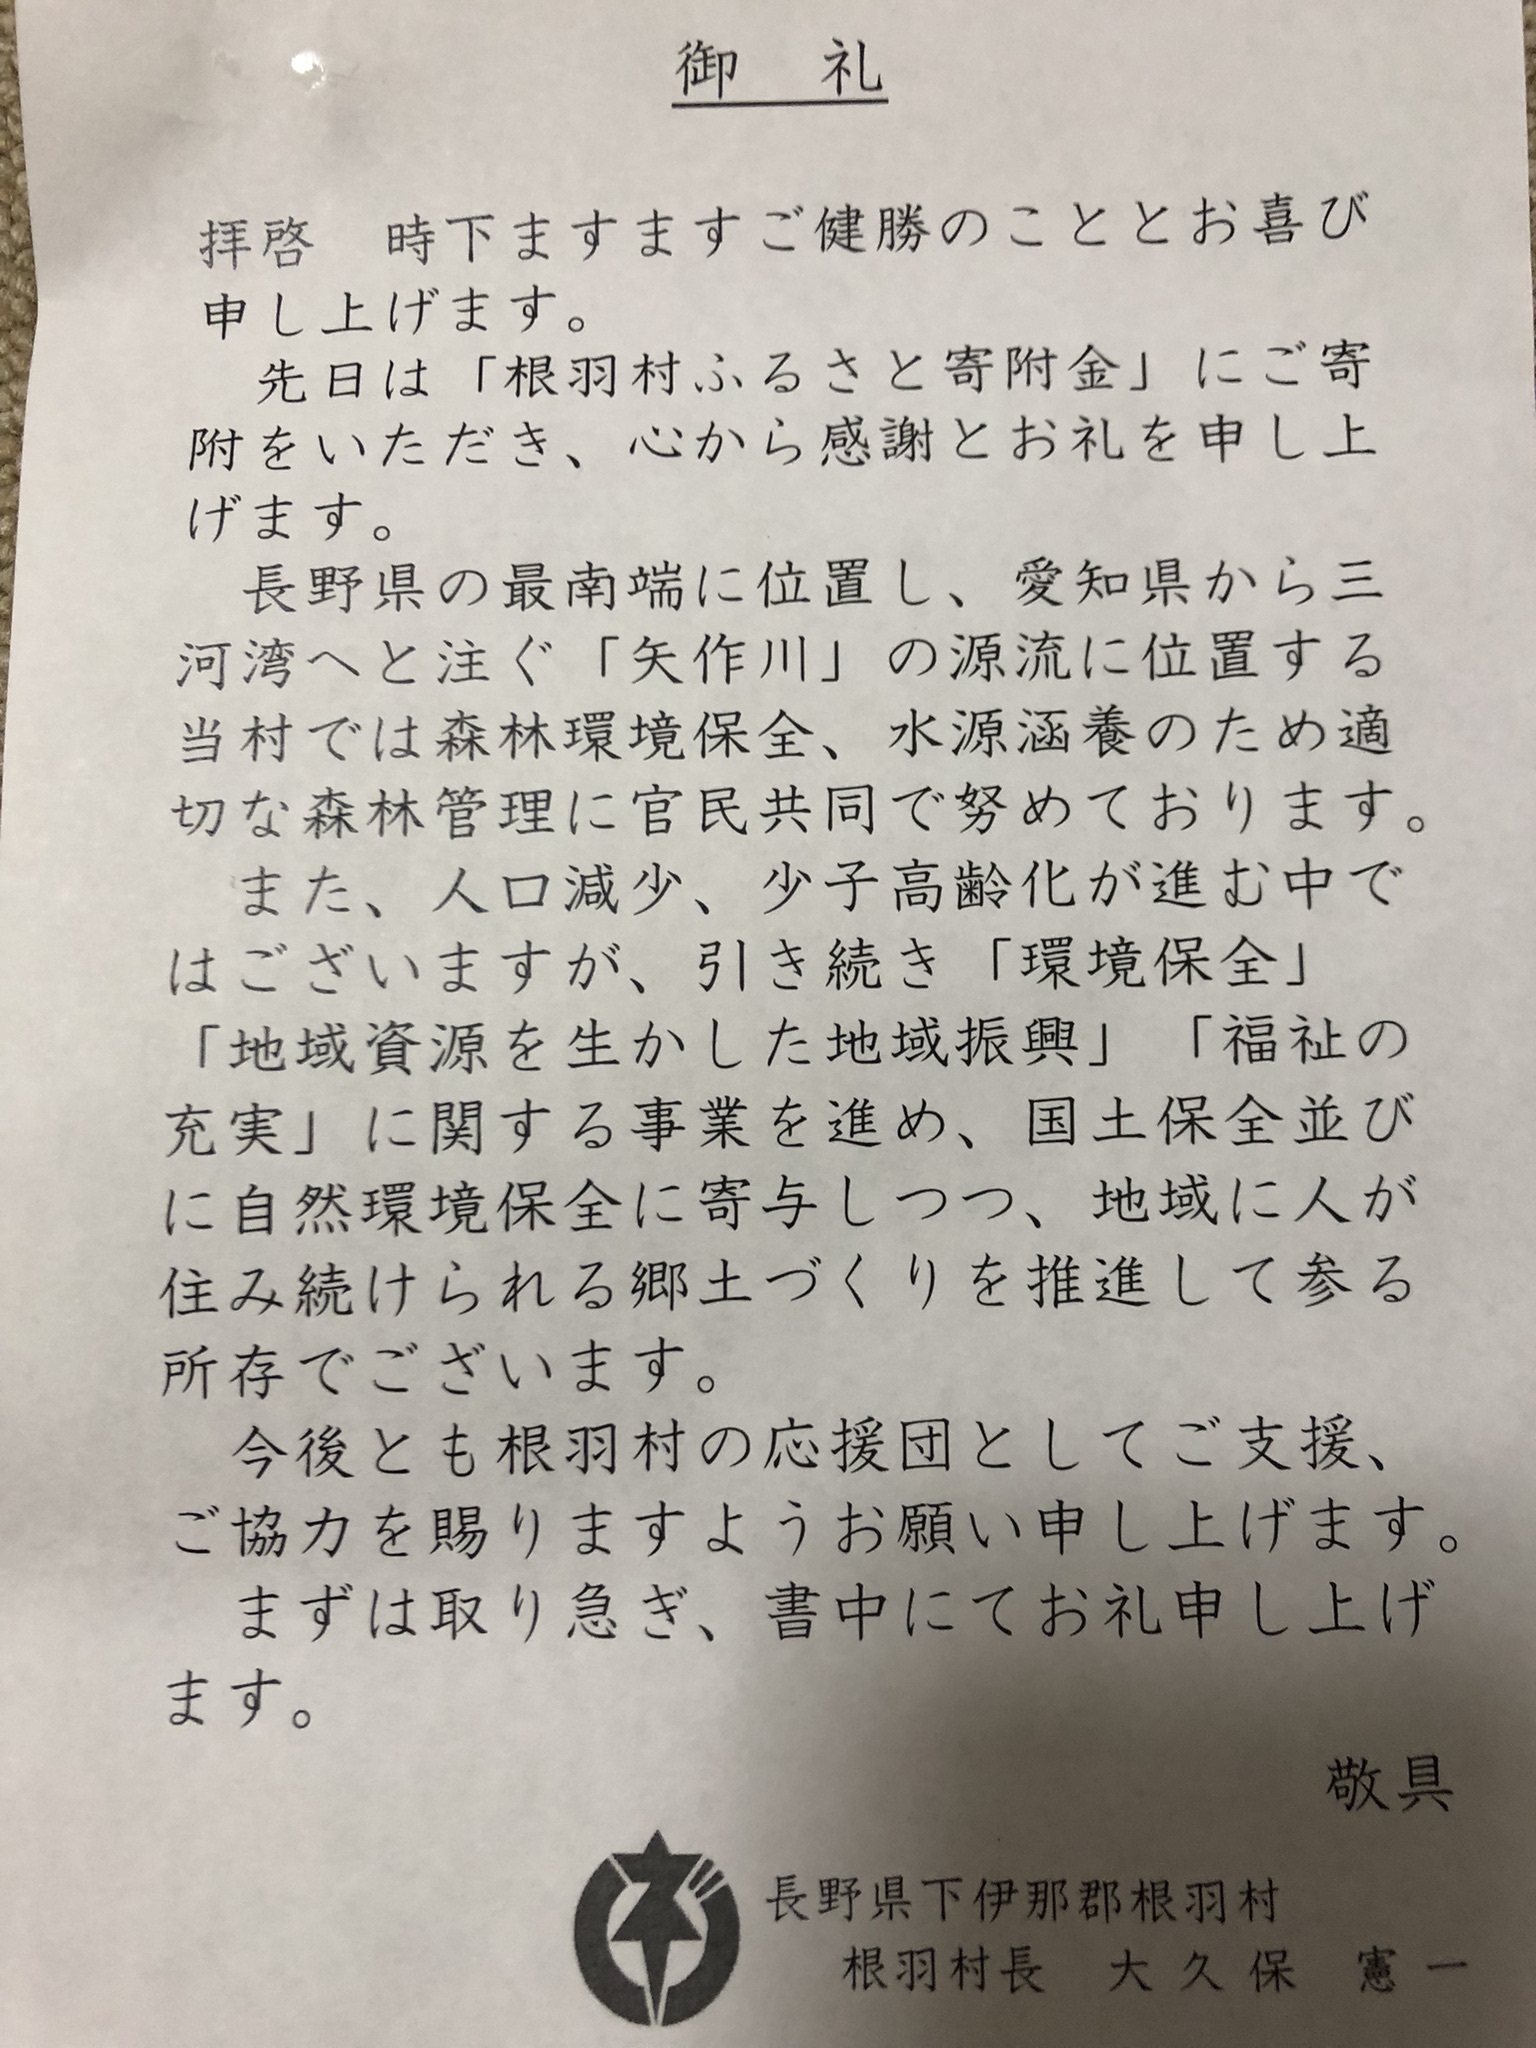 御　礼
拝啓　時下ますますご健勝のこととお喜び
申し上げます。
　先日は「根羽村ふるさと寄附金」にご寄
附をいただき、心から感謝とお礼を申し上
げます。
　長野県の最南端に位置し、愛知県から三
河湾へと注ぐ「矢作川」の源流に位置する
当村では森林環境保全、水源涵養のため適
切な森林管理に官民共同で努めております。
　また、人口減少、少子高齢化が進む中で
はございますが、引き続き「環境保全」
「地域資源を生かした地域振興」「福祉の
充実」に関する事業を進め、国土保全並び
に自然環境保全に寄与しつつ、地域に人が
住み続けられる郷土づくりを推進して参る
所存でございます。
　今後とも根羽村の応援団としてご支援、
ご協力を賜りますようお願い申し上げます。
　まずは取り急ぎ、書中にてお礼申し上げ
ます。
敬具
長野県下伊那郡根羽村
根羽村長　大久保　憲一